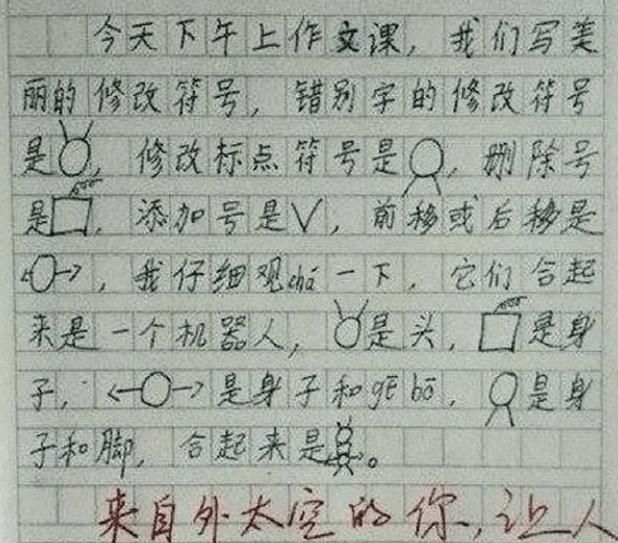 今天下午上作文课，我们写美
丽的修改符号，错别字的修改符号
是，修改标点符号是，删除号
是，添加号是√，前移或后移是
，我仔细观chá一下，它们合起
来是一个机器人，是头，是身
子，是身子和gē bō，是身
子和脚，合起来是。
来自外太空的你，让人